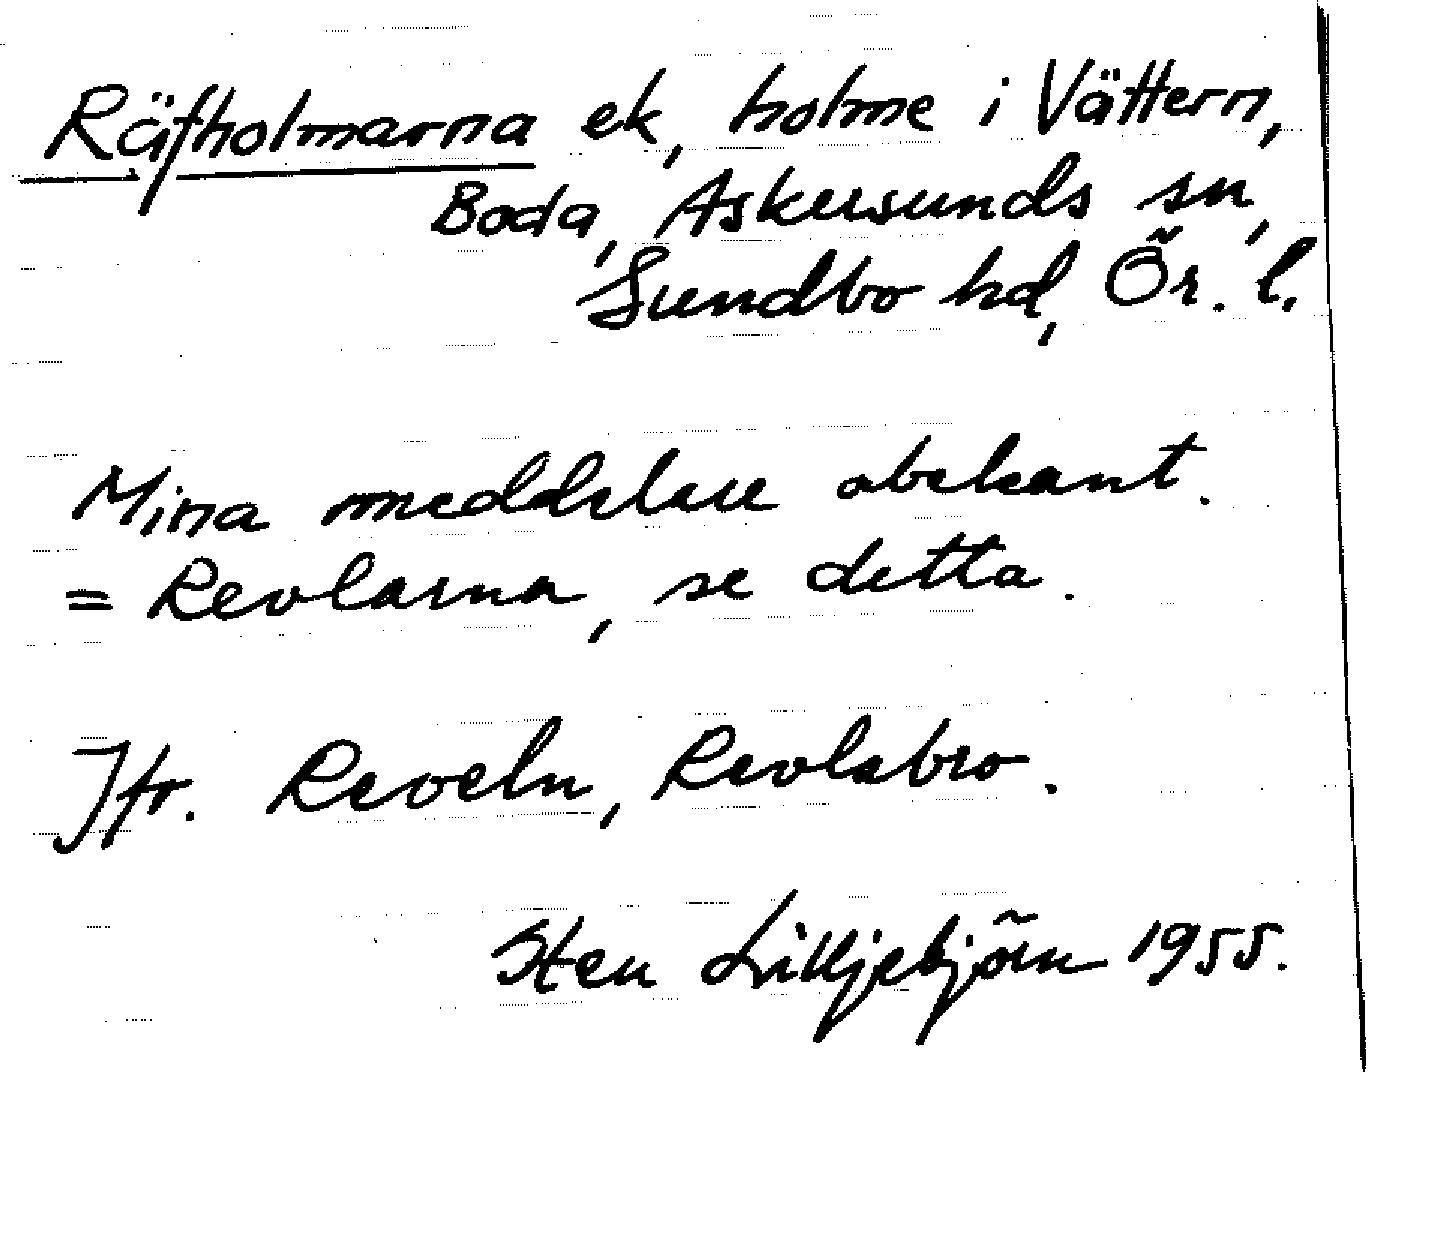 Räfholmarna ek, holme i Vättern,
Boda, Askersunds sn,
Sundbo hd, Ör. l.
Mina meddelare obekant.
= Revlarna, se detta.
Jfr. Reveln, Revlabro.
Sten Lilljebjörn 1955.